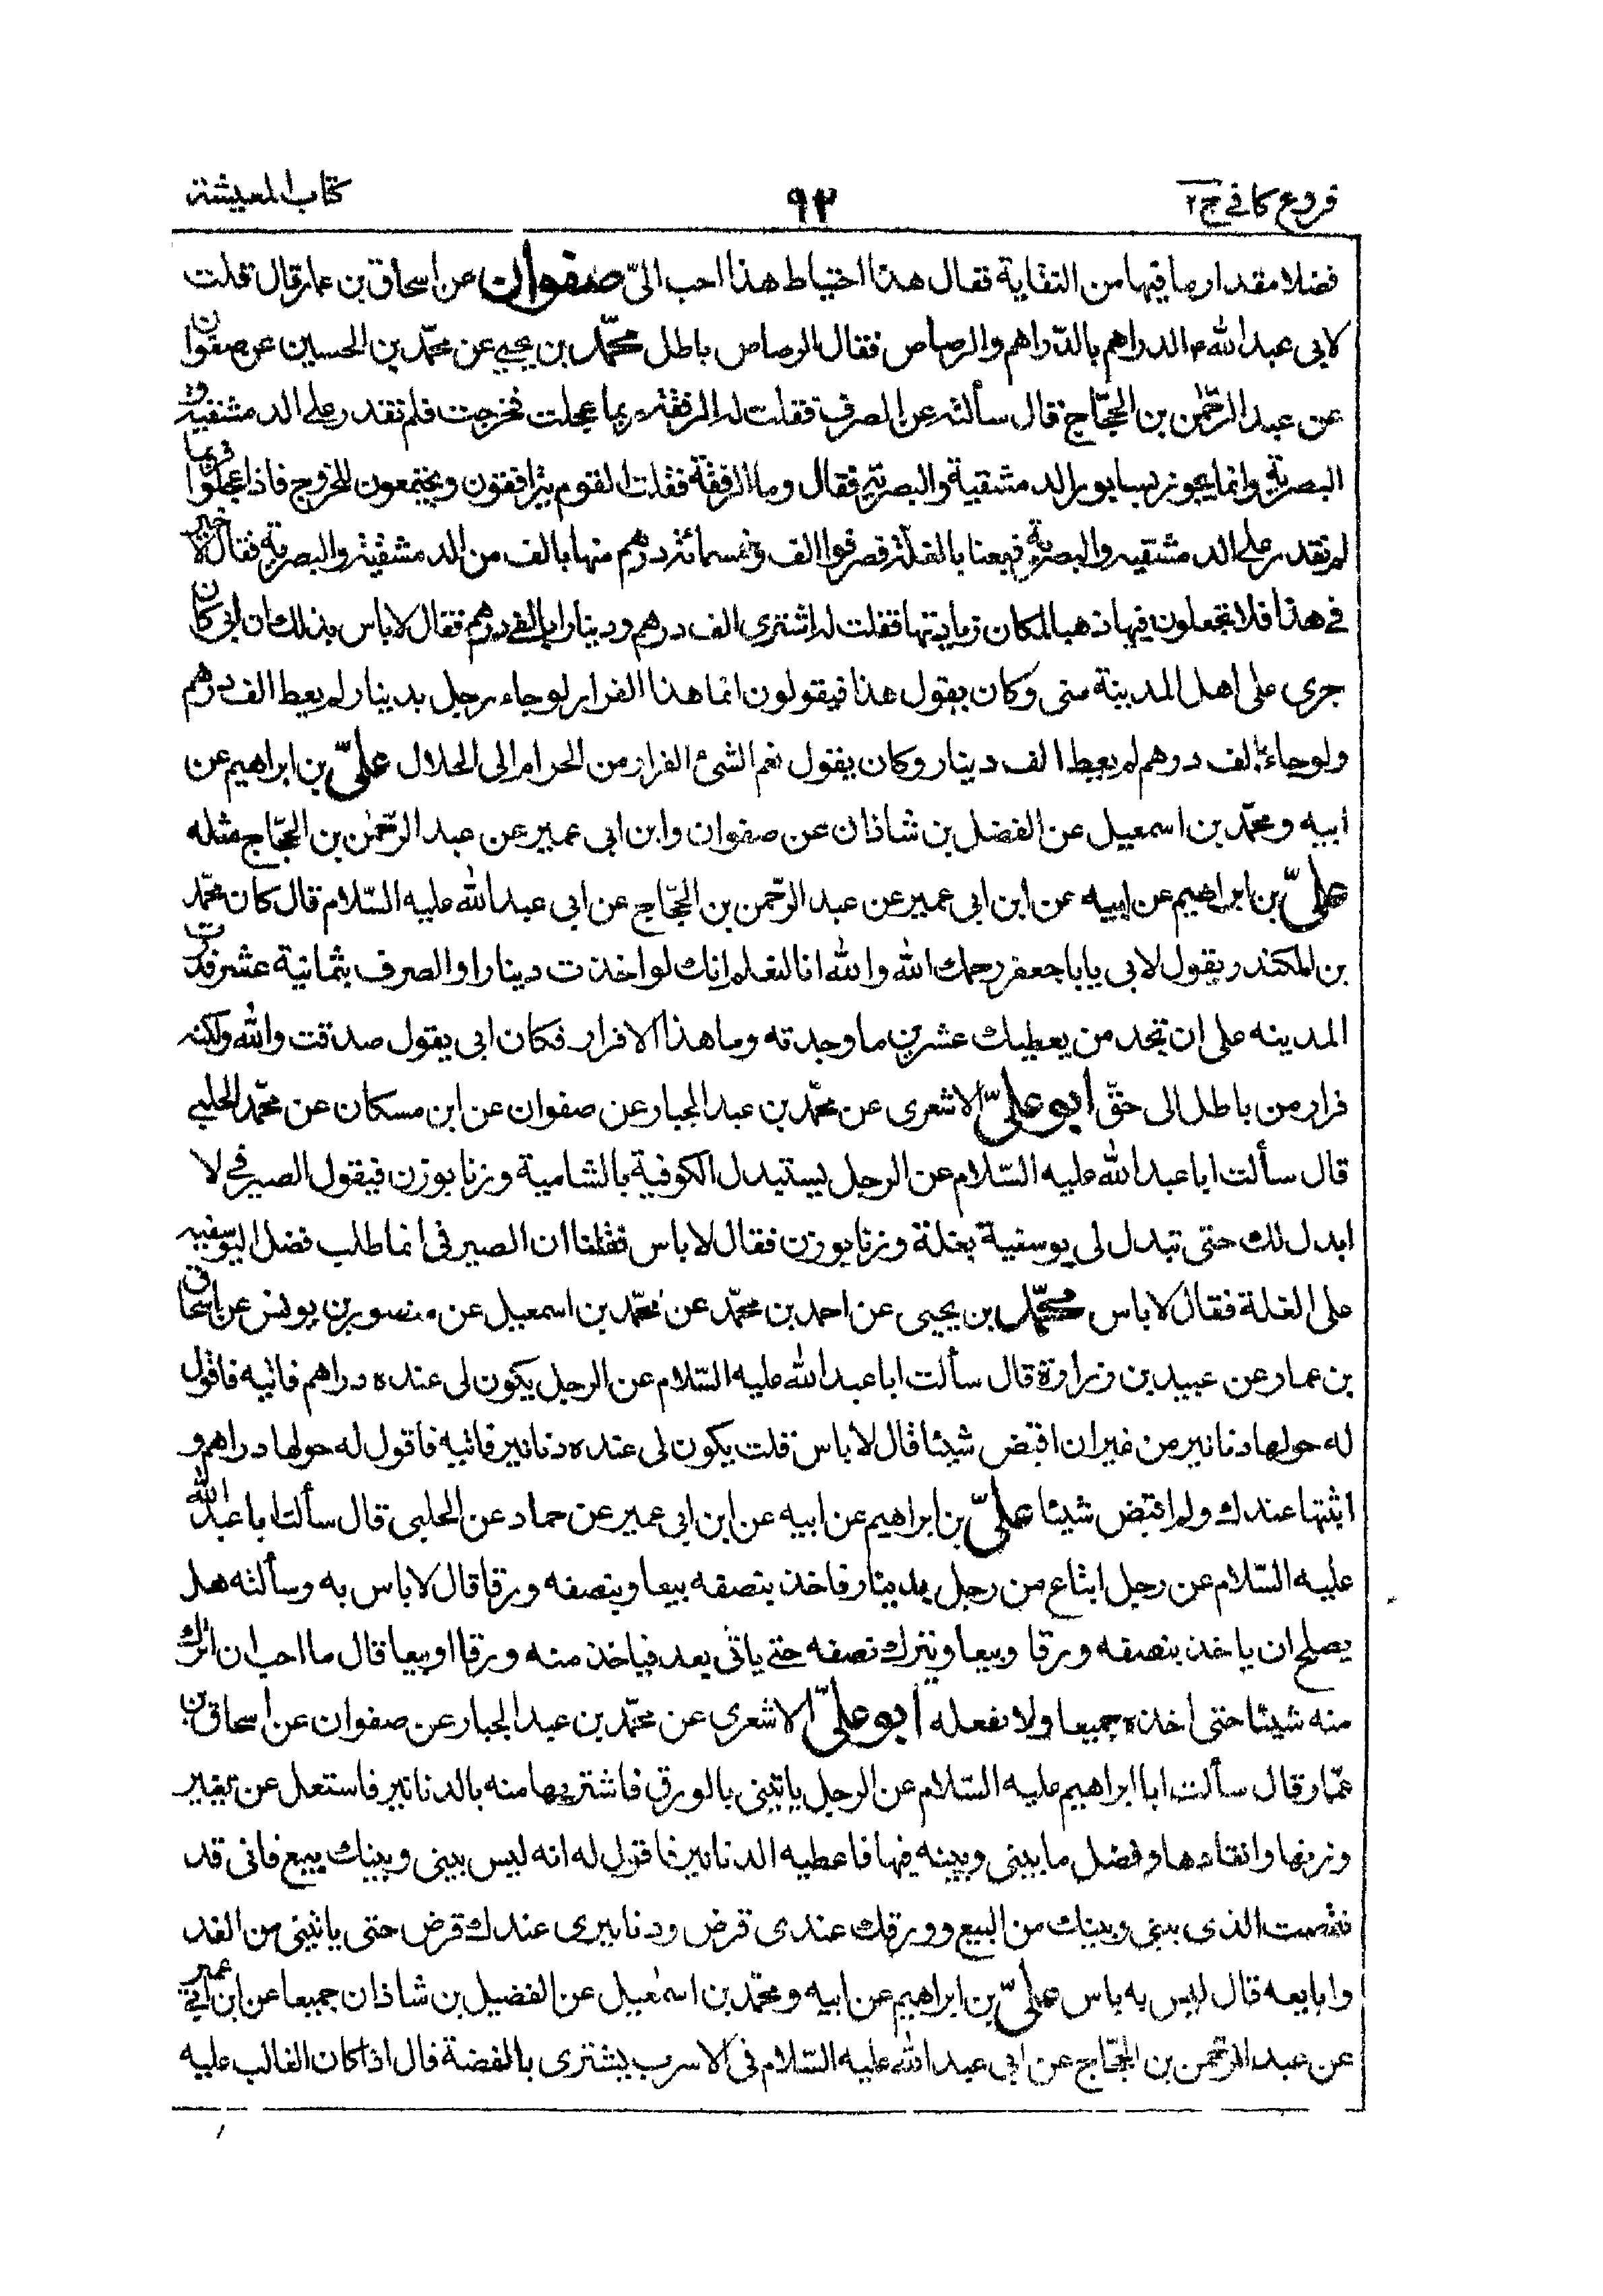 فروع كافي ج٢ ٩٣ كتاب المعيشة
فضلا مقدار ما فيها من النفاية فقال هذا احتياط هذا احب الىّ صفوان عن اسحاق بن عمار قال قلت
لابى عبد الله ع الدراهم بالدّراهم والرصاص فقال الرصاص باطل محمّد بن يحيى عن محمّد بن الحسين عن صفوان
عن عبد الرّحمن بن الحجّاج قال سألته عن الصرف فقلت له الرفقة ربما عجلت فخرجت فلم نقدر على الدمشقية و
البصرية وانما يجوز بسابور الدمشقية والبصرية فقال وما الرفقة فقلت القوم يترافقون ويجتمعون للخروج فاذا عجلوا فربما
لم نقدر على الدمشقيه والبصرية فبعثنا بالغلة فصرفوا الف وخمسمائة درهم منها بالف من الدمشقية والبصرية فقال لا خير
فى هذا فلا تجعلون فيها ذهبا لمكان زيادتها فقلت له اشترى الف درهم ودينارا بالفى درهم فقال لا باس بذلك ان ابى كان
جرى على اهل المدينة منى وكان يقول هذا فيقولون انما هذا الفرار لو جاء رجل بدينار لم يعط الف درهم
ولو جاء بالف درهم لم يعط الف دينار وكان يقول نعم الشئ الفرار من الحرام الى الحلال علىّ بن ابراهيم عن
ابيه ومحمّد بن اسمعيل عن الفضل بن شاذان عن صفوان وابن ابى عمير عن عبد الرّحمن بن الحجّاج مثله
علىّ بن ابراهيم عن ابيه عن ابن ابى عمير عن عبد الرّحمن بن الحجّاج عن ابى عبد الله عليه السّلام قال كان محمّد
بن المكندر يقول لابى يا باجعفر رحمك الله والله انا لنعلم انك لو اخذت دينارا والصرف بثمانية عشر فدرت
المدينه على ان تجد من يعطيك عشرين ما وجدته وما هذا الا فرار فكان ابى يقول صدقت والله ولكنه
فرار من باطل الى حقّ ابو علىّ الاشعرى عن محمّد بن عبد الجبار عن صفوان عن ابن مسكان عن محمّد الحلبى
قال سألت ابا عبد الله عليه السّلام عن الرجل يستبدل الكوفية بالشامية وزنا بوزن فيقول الصيرفى لا
ابدل لك حتى تبدل لى يوسفية بغلة وزنا بوزن فقال لا باس فقلنا ان الصيرفى انما طلب فضل اليوسفيه
على الغلة فقال لا باس محمّد بن يحيى عن احمد بن محمّد عن محمّد بن اسمعيل عن منصور بن يونس عن اسحاق
بن عمار عن عبيد بن زرارة قال سألت ابا عبد الله عليه السّلام عن الرجل يكون لى عنده دراهم فاتيه فاقول
له حولها دنانير من غير ان اقبض شيئا قال لا باس قلت يكون لى عنده دنانير فاتيه فاقول له حولها دراهم و
اثبتها عندك ولم اقبض شيئا علىّ بن ابراهيم عن ابيه عن ابن ابى عمير عن حماد عن الحلبى قال سألت ابا عبد الله
عليه السّلام عن رجل ابتاع من رجل بدينار فاخذ بنصفه بيعا وبنصفه ورقا قال لا باس به وسألته هل
يصلح ان ياخذ بنصفه ورقا وبيعا ويترك نصفه حتى ياتى بعد فياخذ منه ورقا او بيعا قال ما احب ان اترك
منه شيئا حتى اخذه جميعا ولا نفعله ابو علىّ الاشعرى عن محمّد بن عبد الجبار عن صفوان عن اسحاق بن
عمّار قال سألت ابا ابراهيم عليه السّلام عن الرجل ياتينى بالورق فاشتريها منه بالدنانير فاستعل عن تغيير
وزنها وانتقادها وفضل ما بينى وبينه فيها فاعطيه الدنانير فاقول له انه ليس بينى وبينك بيع فانى قد
نقضت الذى بينى وبينك من البيع وورقك عندى قرض ودنانيرى عندك قرض حتى ياتينى من الغد
وابايعه قال ليس به باس علىّ بن ابراهيم عن ابيه ومحمّد بن اسمعيل عن الفضيل بن شاذان جميعا عن ابن ابى عمير
عن عبد الرّحمن بن الحجّاج عن ابى عبد الله عليه السّلام فى الاسرب يشترى بالفضة قال اذا كان الغالب عليه